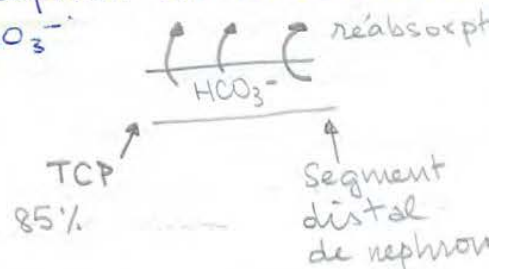 O₃⁻
réabsorpt
HCO₃⁻
TCP
85%
Segment
distal
de nephron